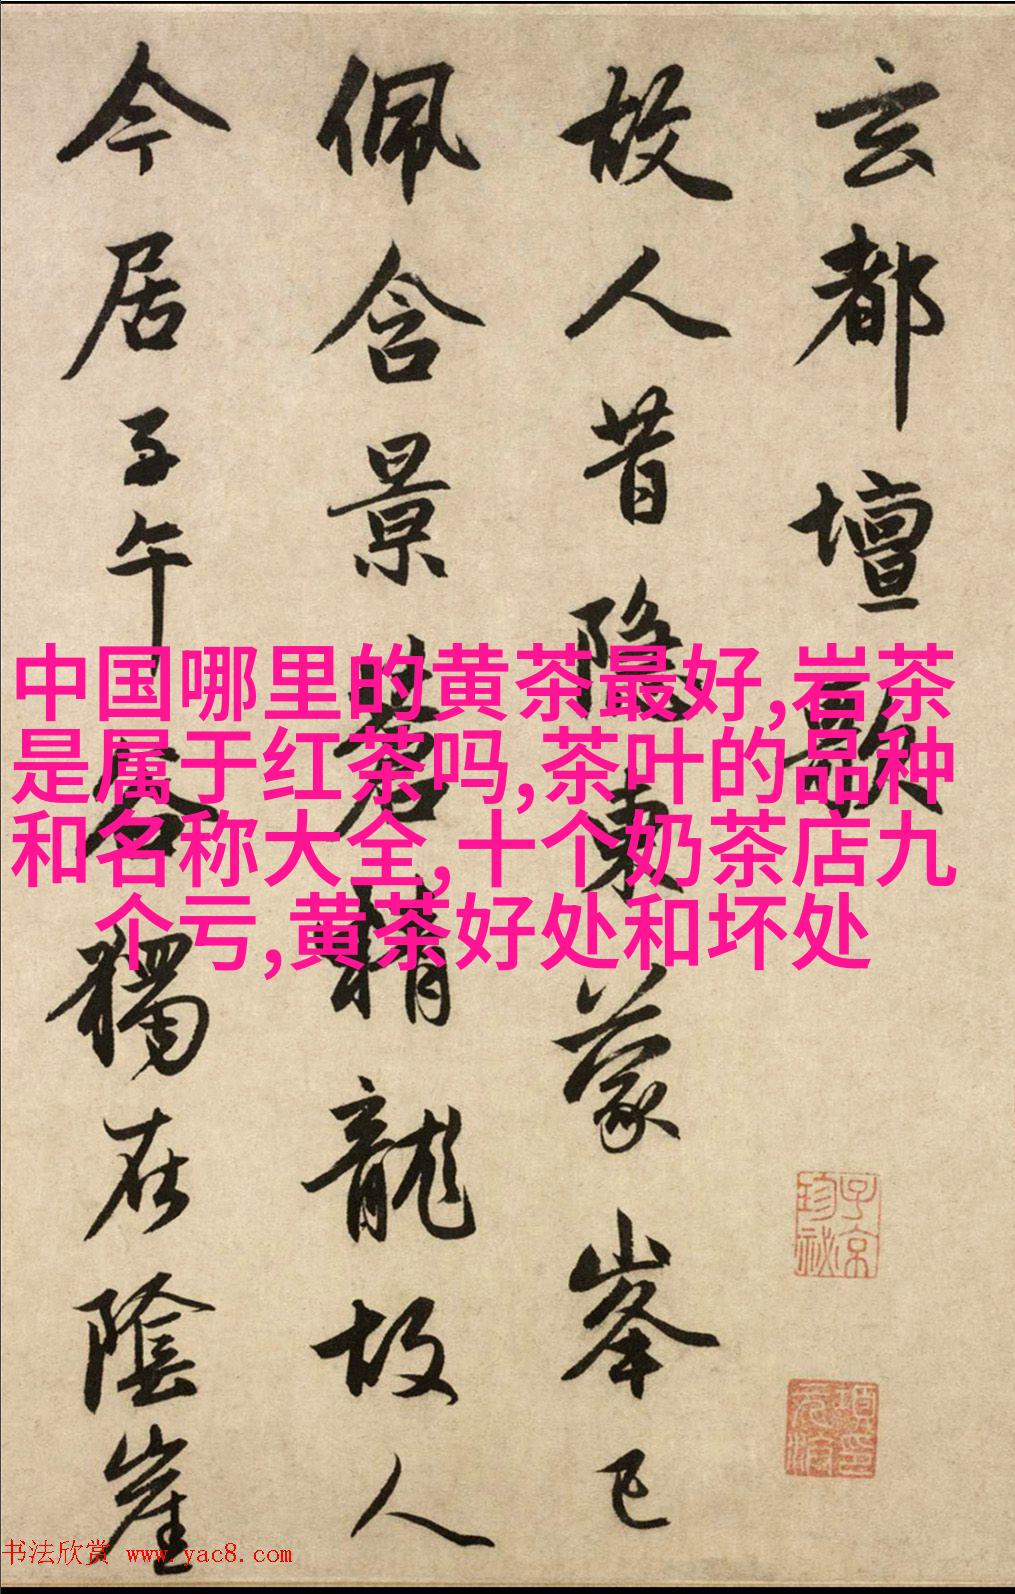 玄都壇歌
故人昔隱東蒙峯已
佩含景蒼精龍故人
今居子午谷獨在陰崖
中国哪里的黄茶最好,岩茶
是属于红茶吗,茶叶的品种
和名称大全,十个奶茶店九
个亏,黄茶好处和坏处
子京
珍祕
书法欣赏 www.yac8.com